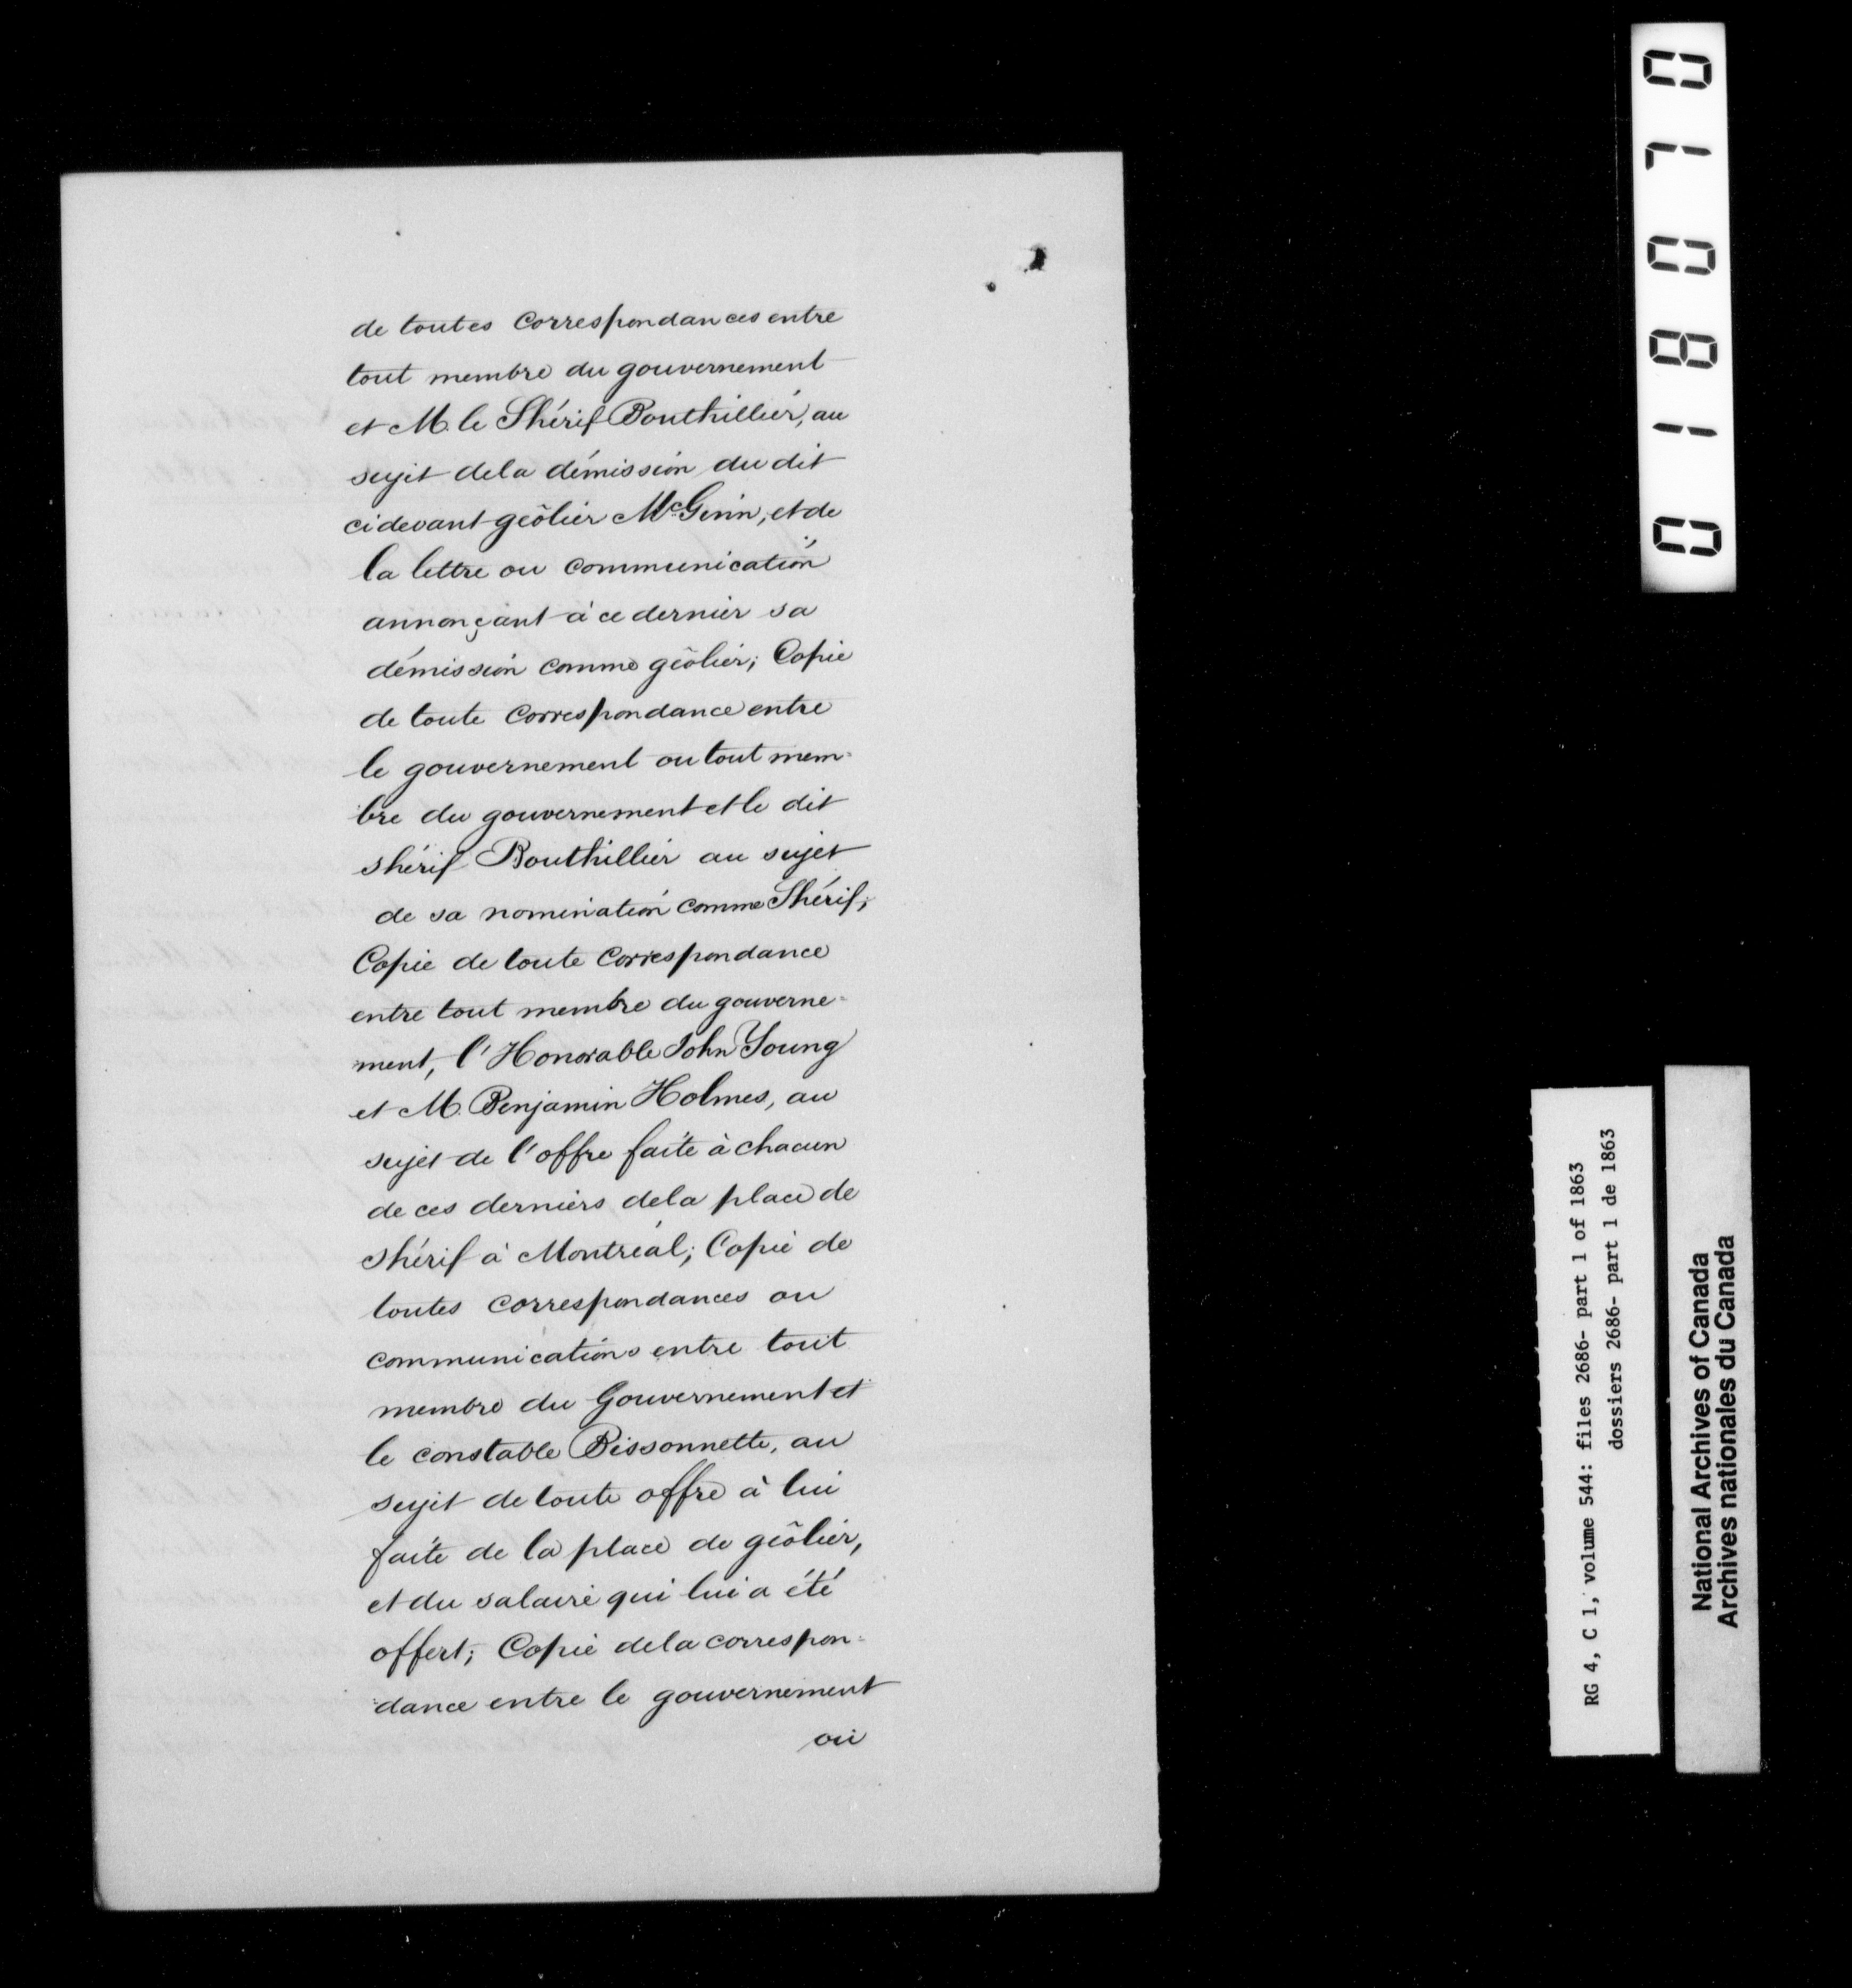 de toutes Correspondances entre
tout membre du gouvernement
et M. le Shérif Bouthillier, au
sujet de la démission du dit
cidevant geôlier McGinn, et de
la lettre ou communication
annonçant à ce dernier sa
démission comme geôlier; Copie
de toute Correspondance entre
le gouvernement ou tout mem-
bre du gouvernement et le dit
shérif Bouthillier au sujet
de sa nomination comme Shérif;
Copie de toute Correspondance
entre tout membre du gouverne-
ment, l'Honorable John Young
et M. Benjamin Holmes, au
sujet de l'offre faite à chacun
de ces derniers de la place de
shérif à Montréal; Copie de
toutes correspondances ou
communications entre tout
membre du Gouvernement et
le constable Bissonnette, au
sujet de toute offre à lui
faite de la place de geôlier,
et du salaire qui lui a été
offert; Copie de la correspon-
dance entre le gouvernement
ou
0180710
RG 4, C 1, volume 544: files 2686- part 1 of 1863
dossiers 2686- part 1 de 1863
National Archives of Canada
Archives nationales du Canada